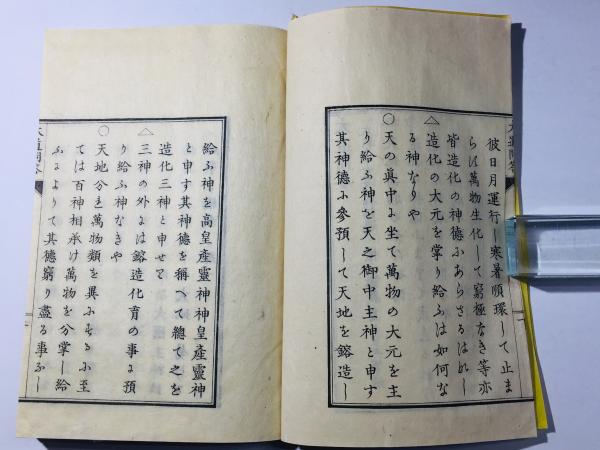 彼日月運行し寒暑順環して止ま
らは萬物生化して窮極なき等亦
皆造化の神德ふあらさるはれし
△
造化の大元を掌り給ふは如何な
る神なりや
○
天の真中に坐て萬物の大元を主
り給ふ神を天之御中主神と申す
其神德ふ參預して天地を鎔造し
給ふ神を高皇産靈神神皇産靈神
と申す其神德を稱へて總て之を
造化三神と申せて
△
三神の外には鎔造化育の事に預
り給ふ神なきや
○
天地分れ萬物類を異ふするふ至
ては百神相承け萬物を分掌し給
ふによりて其德窮り盡る事なし
大道問答